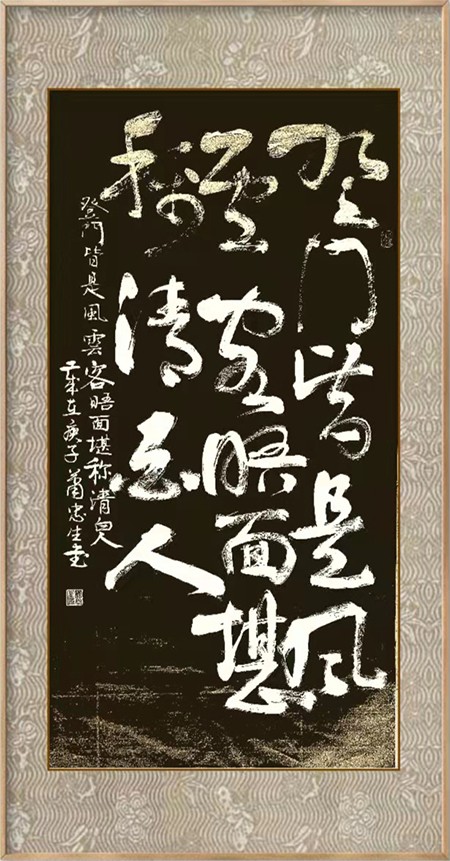 登门皆是风
雲客晤面堪
称清人
登門皆是風雲客晤面堪称清人
歲在庚子蕭忠生書